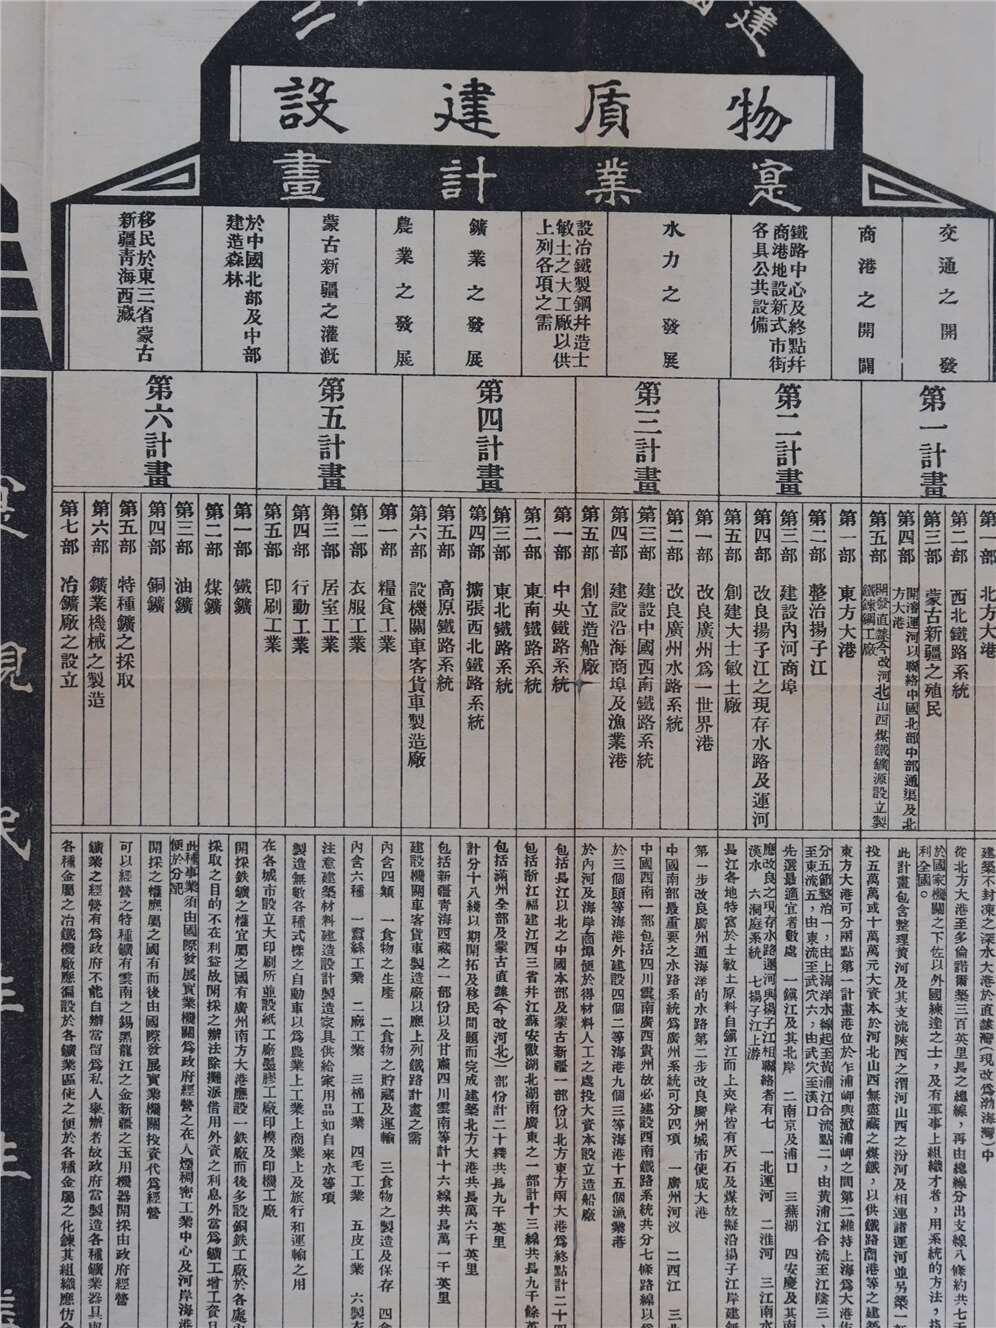 建
物質建設
寔業計畫
交通之開發
商港之開闢
鐵路中心及終點幷
商港地設新式市街
各具公共設備
水力之發展
設冶鐵製鋼幷造士
敏土之大工廠以供
上列各項之需
鑛業之發展
農業之發展
蒙古新疆之灌溉
於中國北部及中部
建造森林
移民於東三省蒙古
新疆青海西藏
第一計畫
第二計畫
第三計畫
第四計畫
第五計畫
第六計畫
第一部 北方大港
第二部 西北鐵路系統
第三部 蒙古新疆之殖民
第四部 開濬運河以聯絡中國北部中部通渠及北
方大港
第五部 開發直隸今改河北山西煤鐵鑛源設立製
鐵鍊鋼工廠
第一部 東方大港
第二部 整治揚子江
第三部 建設內河商埠
第四部 改良揚子江之現存水路及運河
第五部 創建大士敏土廠
第一部 改良廣州為一世界港
第二部 改良廣州水路系統
第三部 建設中國西南鐵路系統
第四部 建設沿海商埠及漁業港
第五部 創立造船廠
第一部 中央鐵路系統
第二部 東南鐵路系統
第三部 東北鐵路系統
第四部 擴張西北鐵路系統
第五部 高原鐵路系統
第六部 設機關車客貨車製造廠
第一部 糧食工業
第二部 衣服工業
第三部 居室工業
第四部 行動工業
第五部 印刷工業
第一部 鐵鑛
第二部 煤鑛
第三部 油鑛
第四部 銅鑛
第五部 特種鑛之採取
第六部 鑛業機械之製造
第七部 冶鑛廠之設立
建築不封凍之深水大港於直隸灣(現改為渤海灣)中
從北方大港至多倫諾爾築三百英里長之總線,再由總線分出支線八條約共七千
於國家機關之下佐以外國練達之士,及有軍事上組織才者,用系統的方法,
利全國。
此計畫包含整理黃河及其支流陝西之渭河山西之汾河及相連諸運河並另築一
投五萬萬或十萬萬元大資本於河北山西無盡藏之煤鐵,以供鐵路商港等之建
東方大港可分兩點第一計畫港位於乍浦岬與澉浦岬之間第二維持上海為大港
分五節整治一,由上海洋水線起至黃浦江合流點二,由黃浦江合流至江陰三、
至東流五,由東流至武穴六,由武穴至漢口
先選最適宜者數處 一鎮江及其北岸 二南京及浦口 三蕪湖 四安慶及其南
應改良之現存水路運河與揚子江相聯絡者有七 一北運河 二淮河 三江南水
漢水 六洞庭系統 七揚子江上游
長江各地特富於士敏土原料自鎮江而上夾岸皆有灰石及煤故擬沿揚子江岸建
第一步改良廣州通海洋的水路第二步改良廣州城市使成大港
中國南部最重要之水路系統為廣州系統可分四項 一廣州河汊 二西江 三北
中國西南一部包括四川雲南廣西貴州故必建設西南鐵路系統共分七條路線以
於三個頭等海港外建設四個二等海港九個三等海港十五個漁業港
於內河及海岸商埠便於得材料人工之處投大資本設立造船廠
包括長江以北之中國本部及蒙古新疆一部份以北方東方兩大港為終點計二十四
包括浙江福建江西三省幷江蘇安徽湖北湖南廣東之一部計十三線共長九千餘英
包括滿州全部及蒙古直隸(今改河北)一部份計二十線共長九千英里
計分十八綫以期開拓及移民問題而完成建築北方大港共長萬六千英里
包括新疆青海西藏之一部份以及甘肅四川雲南等計十六線共長萬一千英里
建設機關車客貨車製造廠以應上列鐵路計畫之需
內含四類 一食物之生產 二食物之貯藏及運輸 三食物之製造及保存 四食
內含六種 一蠶絲工業 二蔴工業 三棉工業 四毛工業 五皮工業 六製衣
注意建築材料建造設計製造家具供給家用品如自來水等項
製造無數各種式樣之自動車以為農業上工業上商業上及旅行和運輸之用
在各城市設立大印刷所並設紙工廠墨膠工廠印模及印機工廠
開採鐵鑛之權宜屬之國有廣州南方大港應設一鐵廠而後多設銅鐵工廠於各處
採取之目的不在利益故開採之辦法除攤派借用外資之利息外當為鑛工增工資
此種事業須由國際發展實業機關為政府經營之在人煙稠密工業中心及河岸海港
便於分配
開採之權應屬之國有而後由國際發展實業機關投資代為經營
可以經營之特種鑛有雲南之錫黑龍江之金新疆之玉用機器開採由政府經營
鑛業之經營有為政府不能自辦當留為私人舉辦者故政府當製造各種鑛業器具
各種金屬之冶鐵機廠應徧設於各鑛業區使之便於各種金屬之化鍊其組織應仿